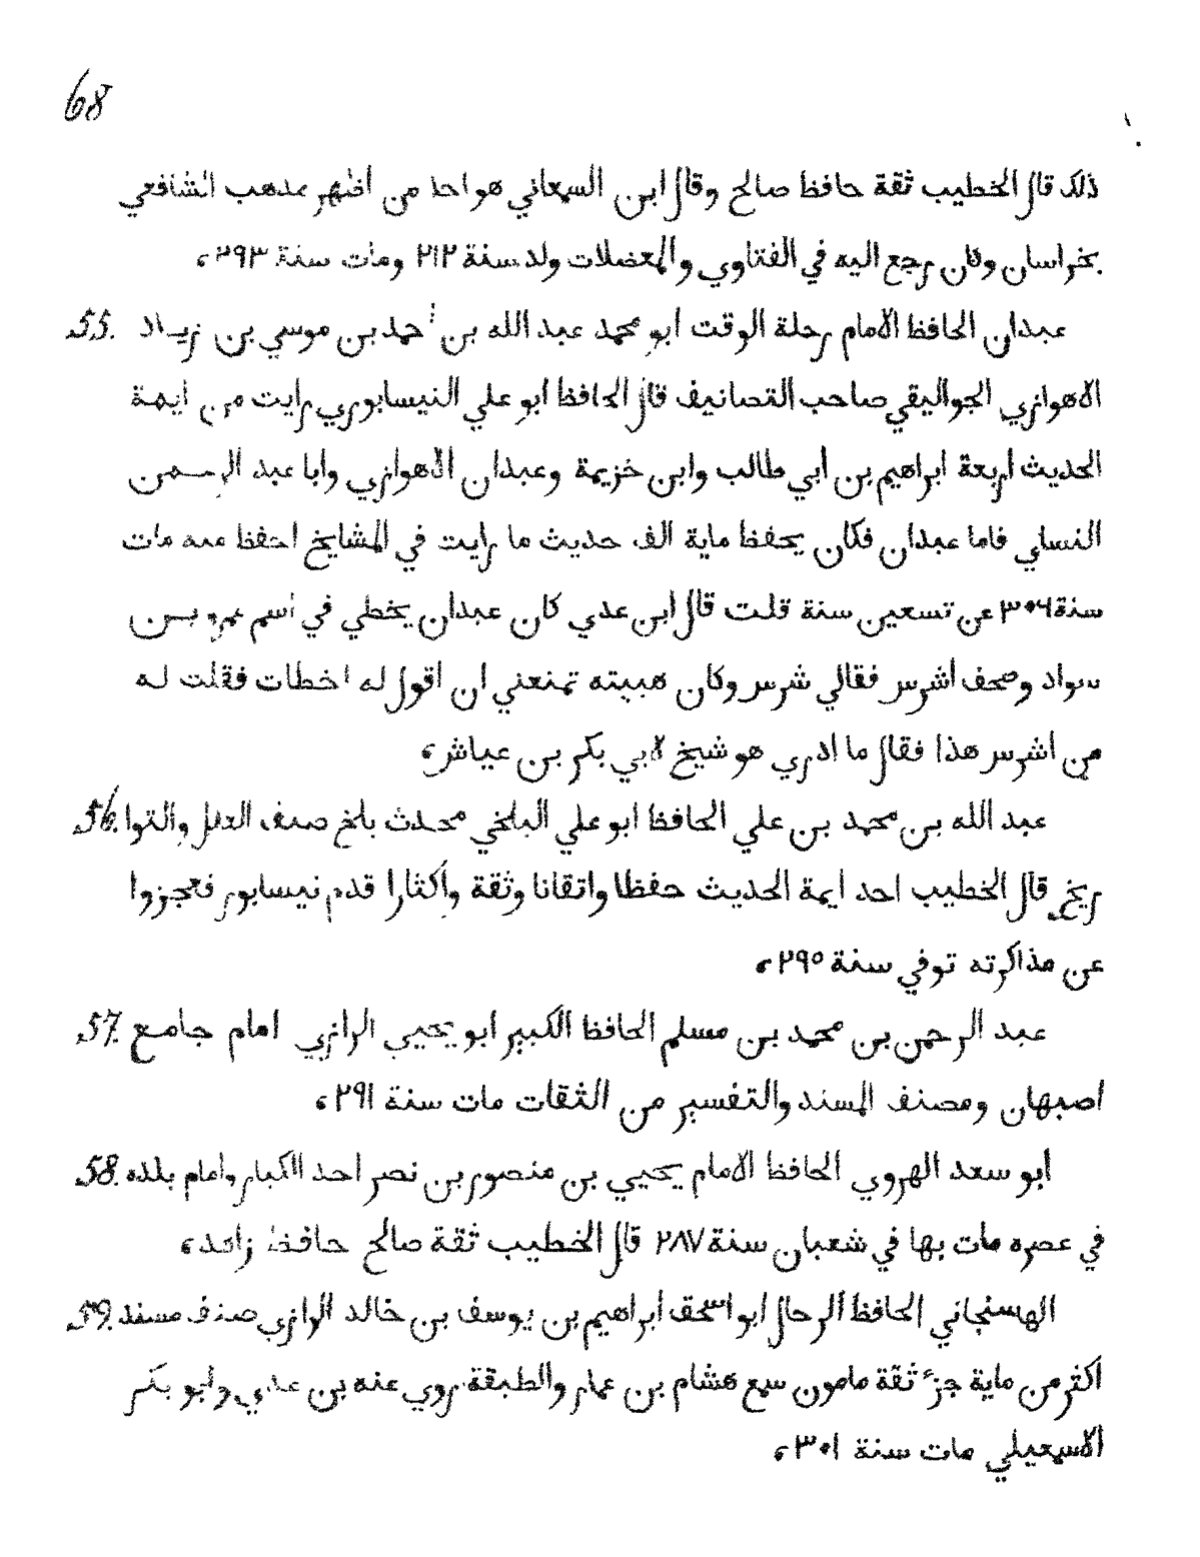 68
ذلك قال الخطيب ثقة حافظ صالح وقال ابن السمعاني هو احد من اظهر مذهب الشافعي
بخراسان وكان يرجع اليه في الفتاوي والمعضلات ولد سنة ٢١٢ ومات سنة ٢٩٣،
عبدان الحافظ الامام رحلة الوقت ابو محمد عبد الله بن احمد بن موسي بن زياد .55
الاهوازي الجواليقي صاحب التصانيف قال الحافظ ابو علي النيسابوري رايت من ايمة
الحديث اربعة ابراهيم بن ابي طالب وابن خزيمة وعبدان الاهوازي وابا عبد الرحمن
النساي فاما عبدان فكان يحفظ ماية الف حديث ما رايت في المشايخ احفظ منه مات
سنة ٣٠٦ عن تسعين سنة قلت قال ابن عدي كان عبدان يخطي في اسم عمرو بن
سواد وصحف اشرس فقالي شرس وكان هيبته تمنعني ان اقول له اخطات فقلت له
من اشرس هذا فقال ما ادري هو شيخ لابي بكر بن عياش،
عبد الله بن محمد بن علي الحافظ ابو علي البلخي محدث بلخ صنف العلل والتوا .56
ريخ قال الخطيب احد ايمة الحديث حفظا واتقانا وثقة واكثارا قدم نيسابور فعجزوا
عن مذاكرته توفي سنة ٢٩٥،
عبد الرحمن بن محمد بن مسلم الحافظ الكبير ابو يحيي الرازي امام جامع .57
اصبهان ومصنف المسند والتفسير من الثقات مات سنة ٢٩١،
ابو سعد الهروي الحافظ الامام يحيي بن منصور بن نصر احد الكبار وامام بلده .58
في عصره مات بها في شعبان سنة ٢٨٧ قال الخطيب ثقة صالح حافظ زاهد،
الهسنجاني الحافظ الرحال ابو اسحق ابراهيم بن يوسف بن خالد الرازي صنف مسند .59
اكثر من ماية جزء ثقة مامون سمع هشام بن عمار والطبقة روي عنه بن عدي وابو بكر
الاسمعيلي مات سنة ٣٠١،